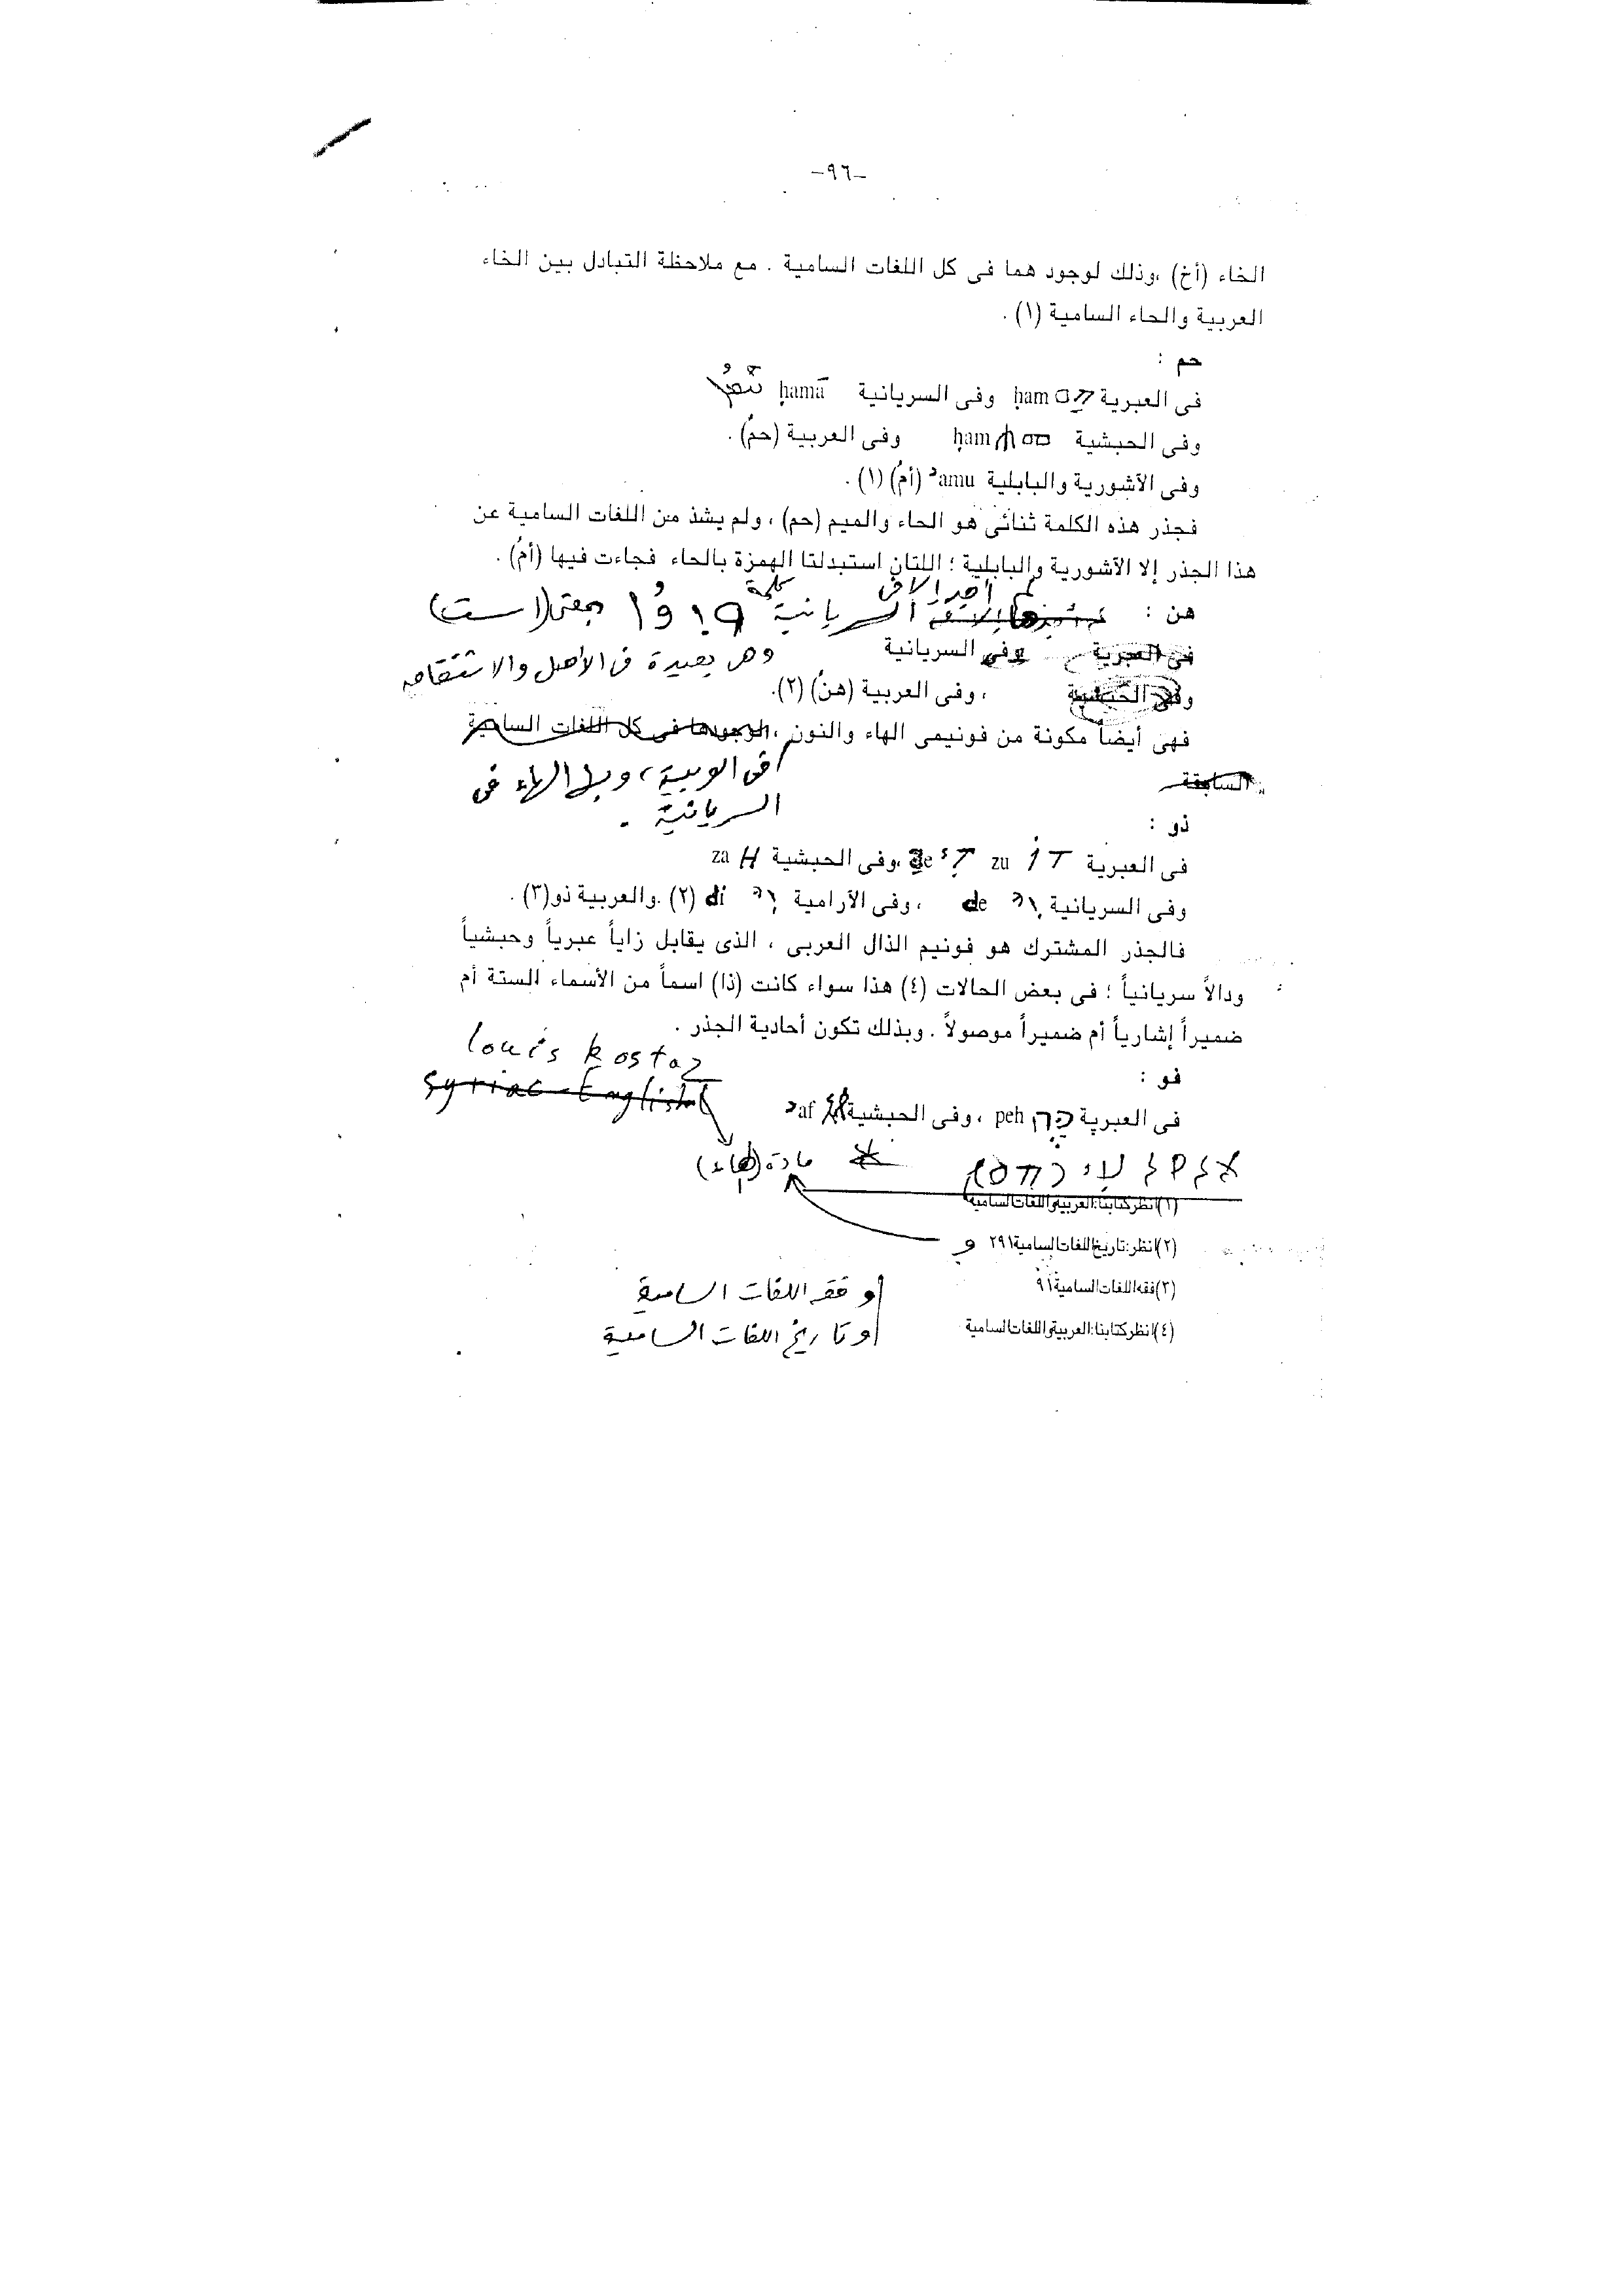 -٩٦-
الخاء (أخ) ،وذلك لوجود هما فى كل اللغات السامية . مع ملاحظة التبادل بين الخاء
العربية والحاء السامية (١) .
حم :
فى العبرية חם ḥam وفى السريانية ḥamā
وفى الحبشية ḥam وفى العربية (حمُ) .
وفى الآشورية والبابلية amu (أمُ) (١) .
فجذر هذه الكلمة ثنائى هو الحاء والميم (حم) ، ولم يشذ من اللغات السامية عن
هذا الجذر إلا الآشورية والبابلية ؛ اللتان استبدلتا الهمزة بالحاء فجاءت فيها (أمُ) .
لم أجد إلا فى كلمة
هن : السريانية بمعنى (است)
فى العبرية وفى السريانية وهى بعيدة فى الأصل والاشتقاق
وفى الحبشية ، وفى العربية (هنُ) (٢).
فهى أيضاً مكونة من فونيمى الهاء والنون ،لوجودها فى كل اللغات السامية
فى العربية ، و الهاء فى
السابقة
السريانية .
ذو :
فى العبرية זו zu ،وفى الحبشية za
وفى السريانية de ، وفى الآرامية di (٢) .والعربية ذو(٣) .
فالجذر المشترك هو فونيم الذال العربى ، الذى يقابل زاياً عبرياً وحبشياً
ودالاً سريانياً ؛ فى بعض الحالات (٤) هذا سواء كانت (ذا) اسماً من الأسماء الستة أم
ضميراً إشارياً أم ضميراً موصولاً . وبذلك تكون أحادية الجذر .
louis kostaz
فو :
Syriac-English
فى العبرية פה peh ، وفى الحبشية af
مادة
(١)انظركتابنا:العربية واللغات السامية
(٢)انظر:تاريخ اللغات السامية ٢٩١
(٣)فقه اللغات السامية ٩١
و فقه اللغات السامية
(٤)انظركتابنا:العربية واللغات السامية
و تاريخ اللغات السامية